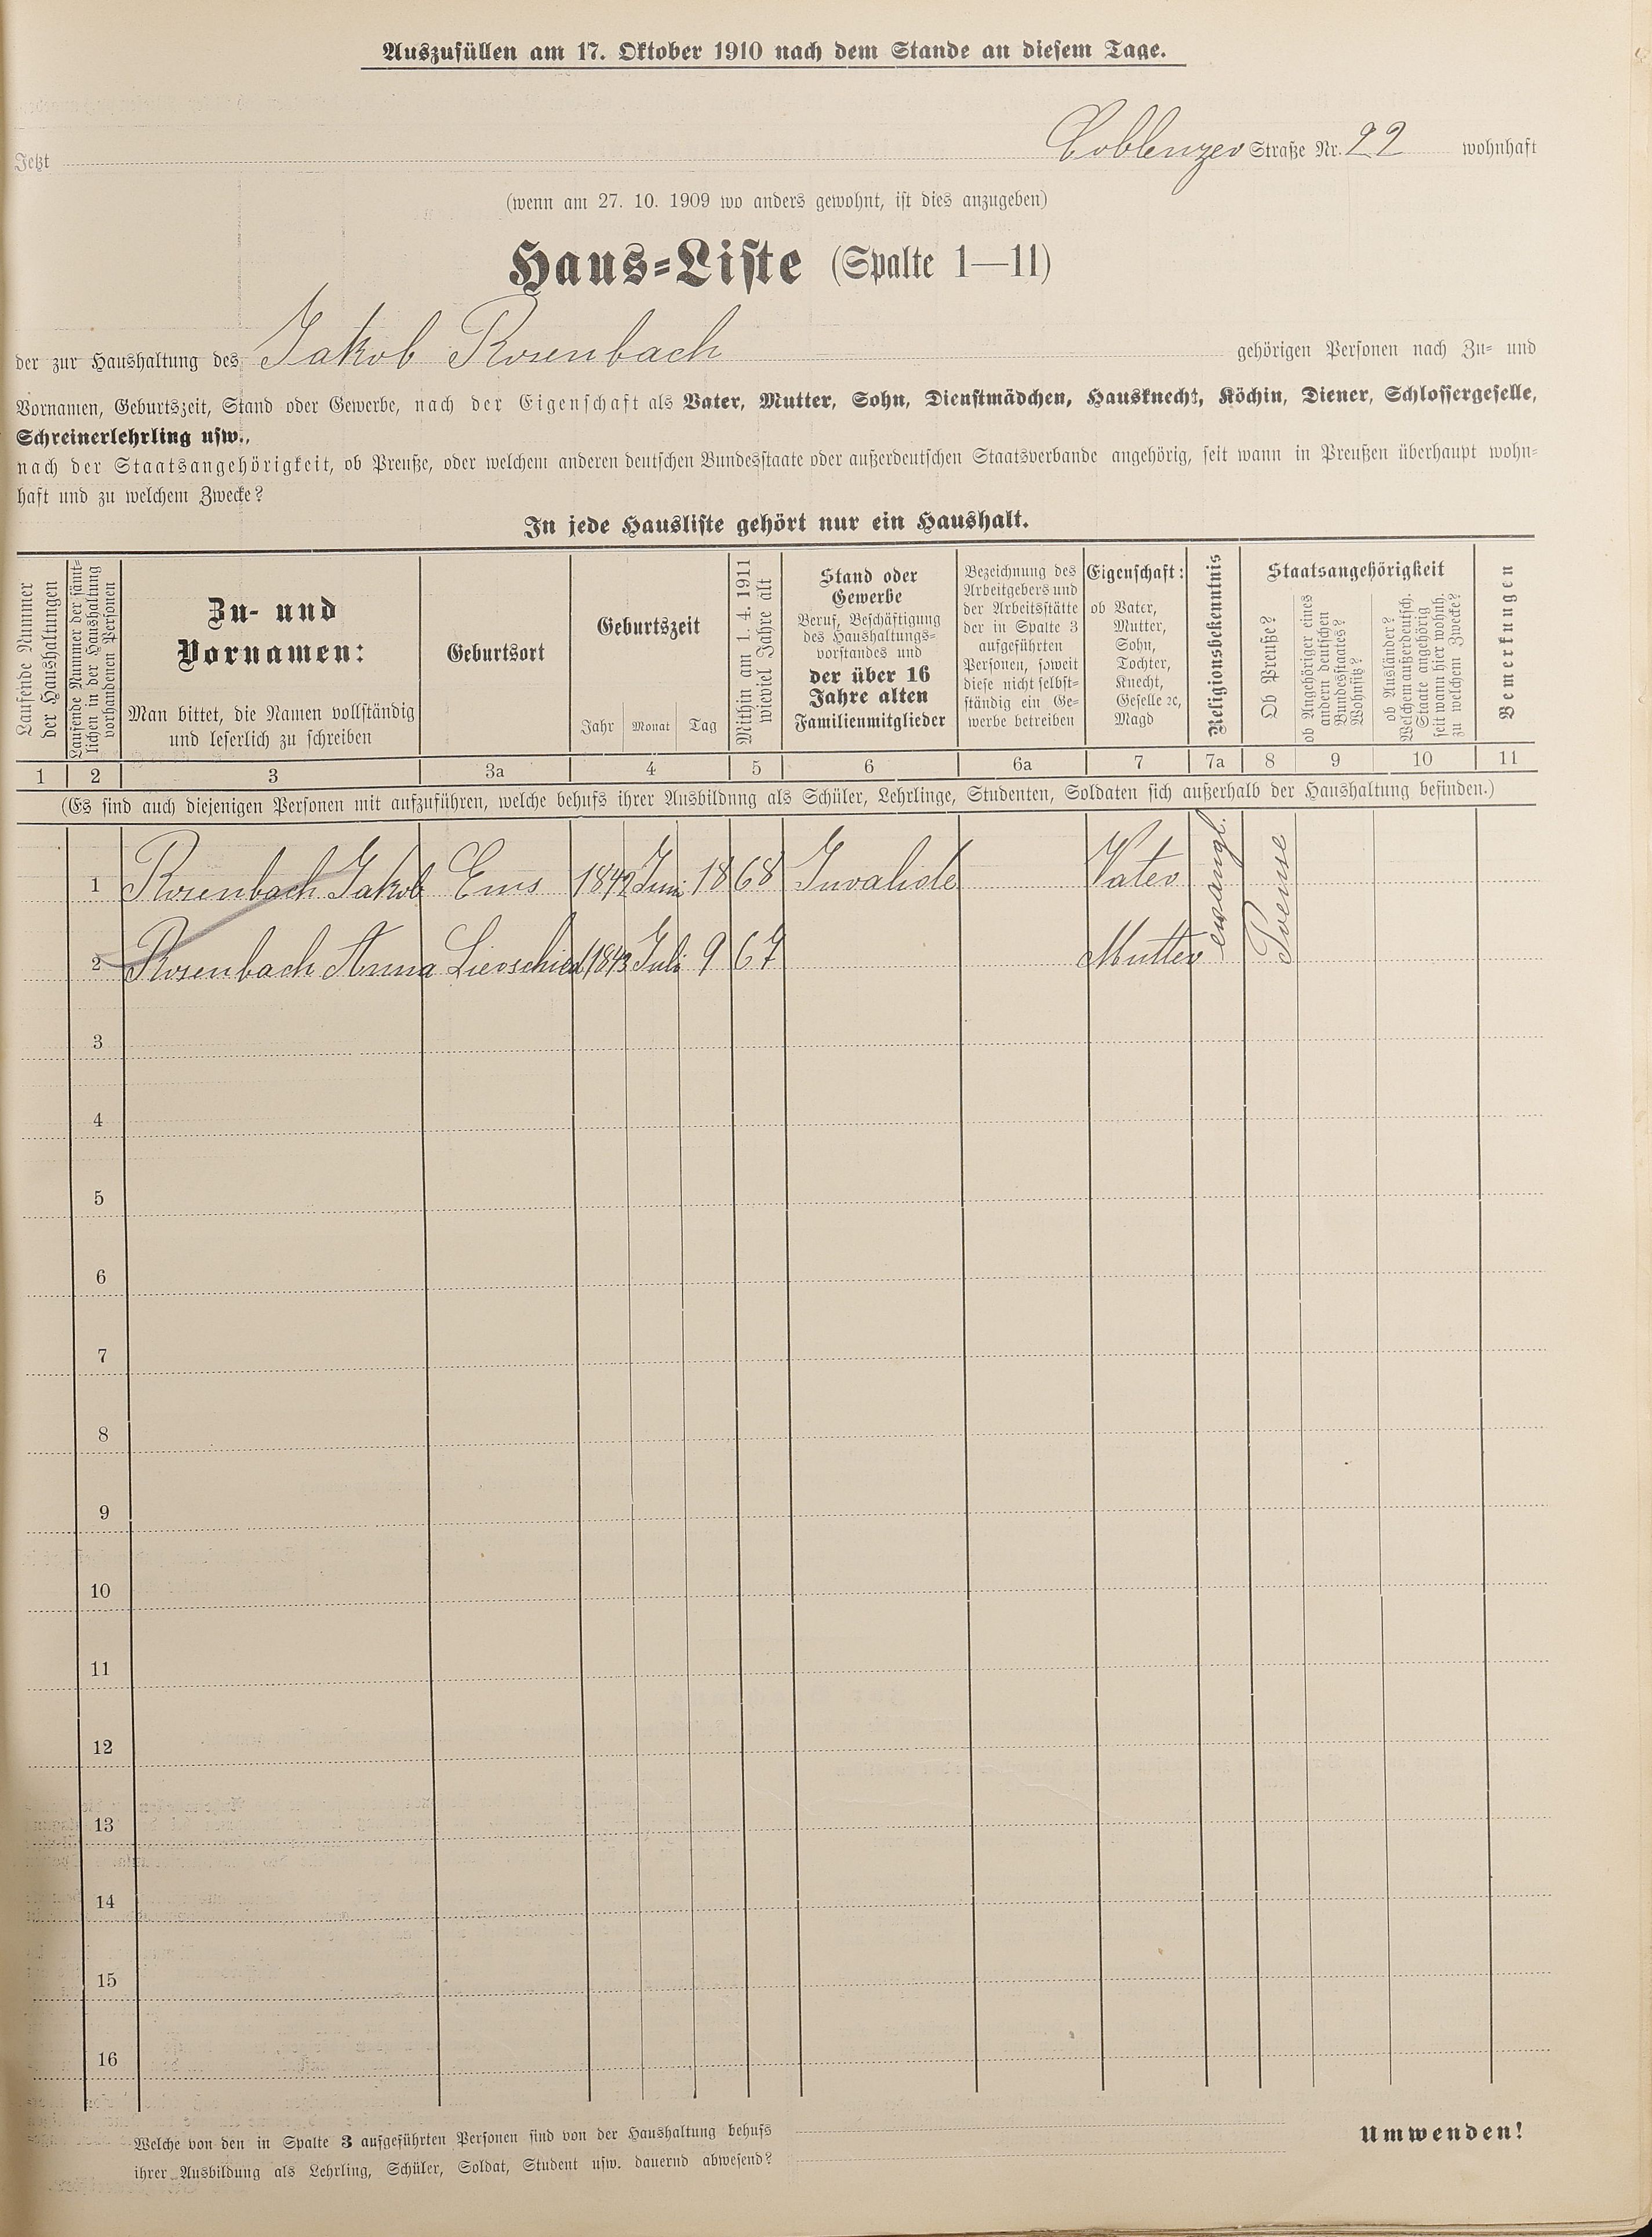 Auszufüllen am 17. Oktober 1910 nach dem Stande an diesem Tage.
Jetzt Coblenzer Straße Nr. 22 wohnhaft
(wenn am 27. 10. 1909 wo anders gewohnt, ist dies anzugeben)
Haus-Liste (Spalte 1—11)
der zur Haushaltung des Jakob Rosenbach gehörigen Personen nach Zu- und
Vornamen, Geburtszeit, Stand oder Gewerbe, nach der Eigenschaft als Vater, Mutter, Sohn, Dienstmädchen, Hausknecht, Köchin, Diener, Schlossergeselle,
Schreinerlehrling usw.,
nach der Staatsangehörigkeit, ob Preuße, oder welchem anderen deutschen Bundesstaate oder außerdeutschen Staatsverbande angehörig, seit wann in Preußen überhaupt wohn-
haft und zu welchem Zwecke?
In jede Hausliste gehört nur ein Haushalt.
Laufende Nummer
der Haushaltungen
Laufende Nummer der sämt-
lichen in der Haushaltung
vorhandenen Personen
Zu- und
Vornamen:
Man bittet, die Namen vollständig
und leserlich zu schreiben
Geburtsort
Geburtszeit
Jahr Monat Tag
Mithin am 1. 4. 1911
wieviel Jahre alt
Stand oder
Gewerbe
Beruf, Beschäftigung
des Haushaltungs-
vorstandes und
der über 16
Jahre alten
Familienmitglieder
Bezeichnung des
Arbeitgebers und
der Arbeitsstätte
der in Spalte 3
aufgeführten
Personen, soweit
diese nicht selbst-
ständig ein Ge-
werbe betreiben
Eigenschaft:
ob Vater,
Mutter,
Sohn,
Tochter,
Knecht,
Geselle ꝛc,
Magd
Religionsbekenntnis
Staatsangehörigkeit
Ob Preuße?
ob Angehöriger eines
andern deutschen
Bundesstaates?
Wohnsitz?
ob Ausländer?
Welchem außerdeutsch.
Staate angehörig
seit wann hier wohnh.
zu welchem Zwecke?
Bemerkungen
1 2 3 3a 4 5 6 6a 7 7a 8 9 10 11
(Es sind auch diejenigen Personen mit aufzuführen, welche behufs ihrer Ausbildung als Schüler, Lehrlinge, Studenten, Soldaten sich außerhalb der Haushaltung befinden.)
1 Rosenbach Jakob Ems 1842 Juni 18 68 Invalide Vater evangl. Preuse
2 Rosenbach Anna Lierschied 1843 Juli 9 67 Mutter
3
4
5
6
7
8
9
10
11
12
13
14
15
16
Welche von den in Spalte 3 aufgeführten Personen sind von der Haushaltung behufs
ihrer Ausbildung als Lehrling, Schüler, Soldat, Student usw. dauernd abwesend?
Umwenden!